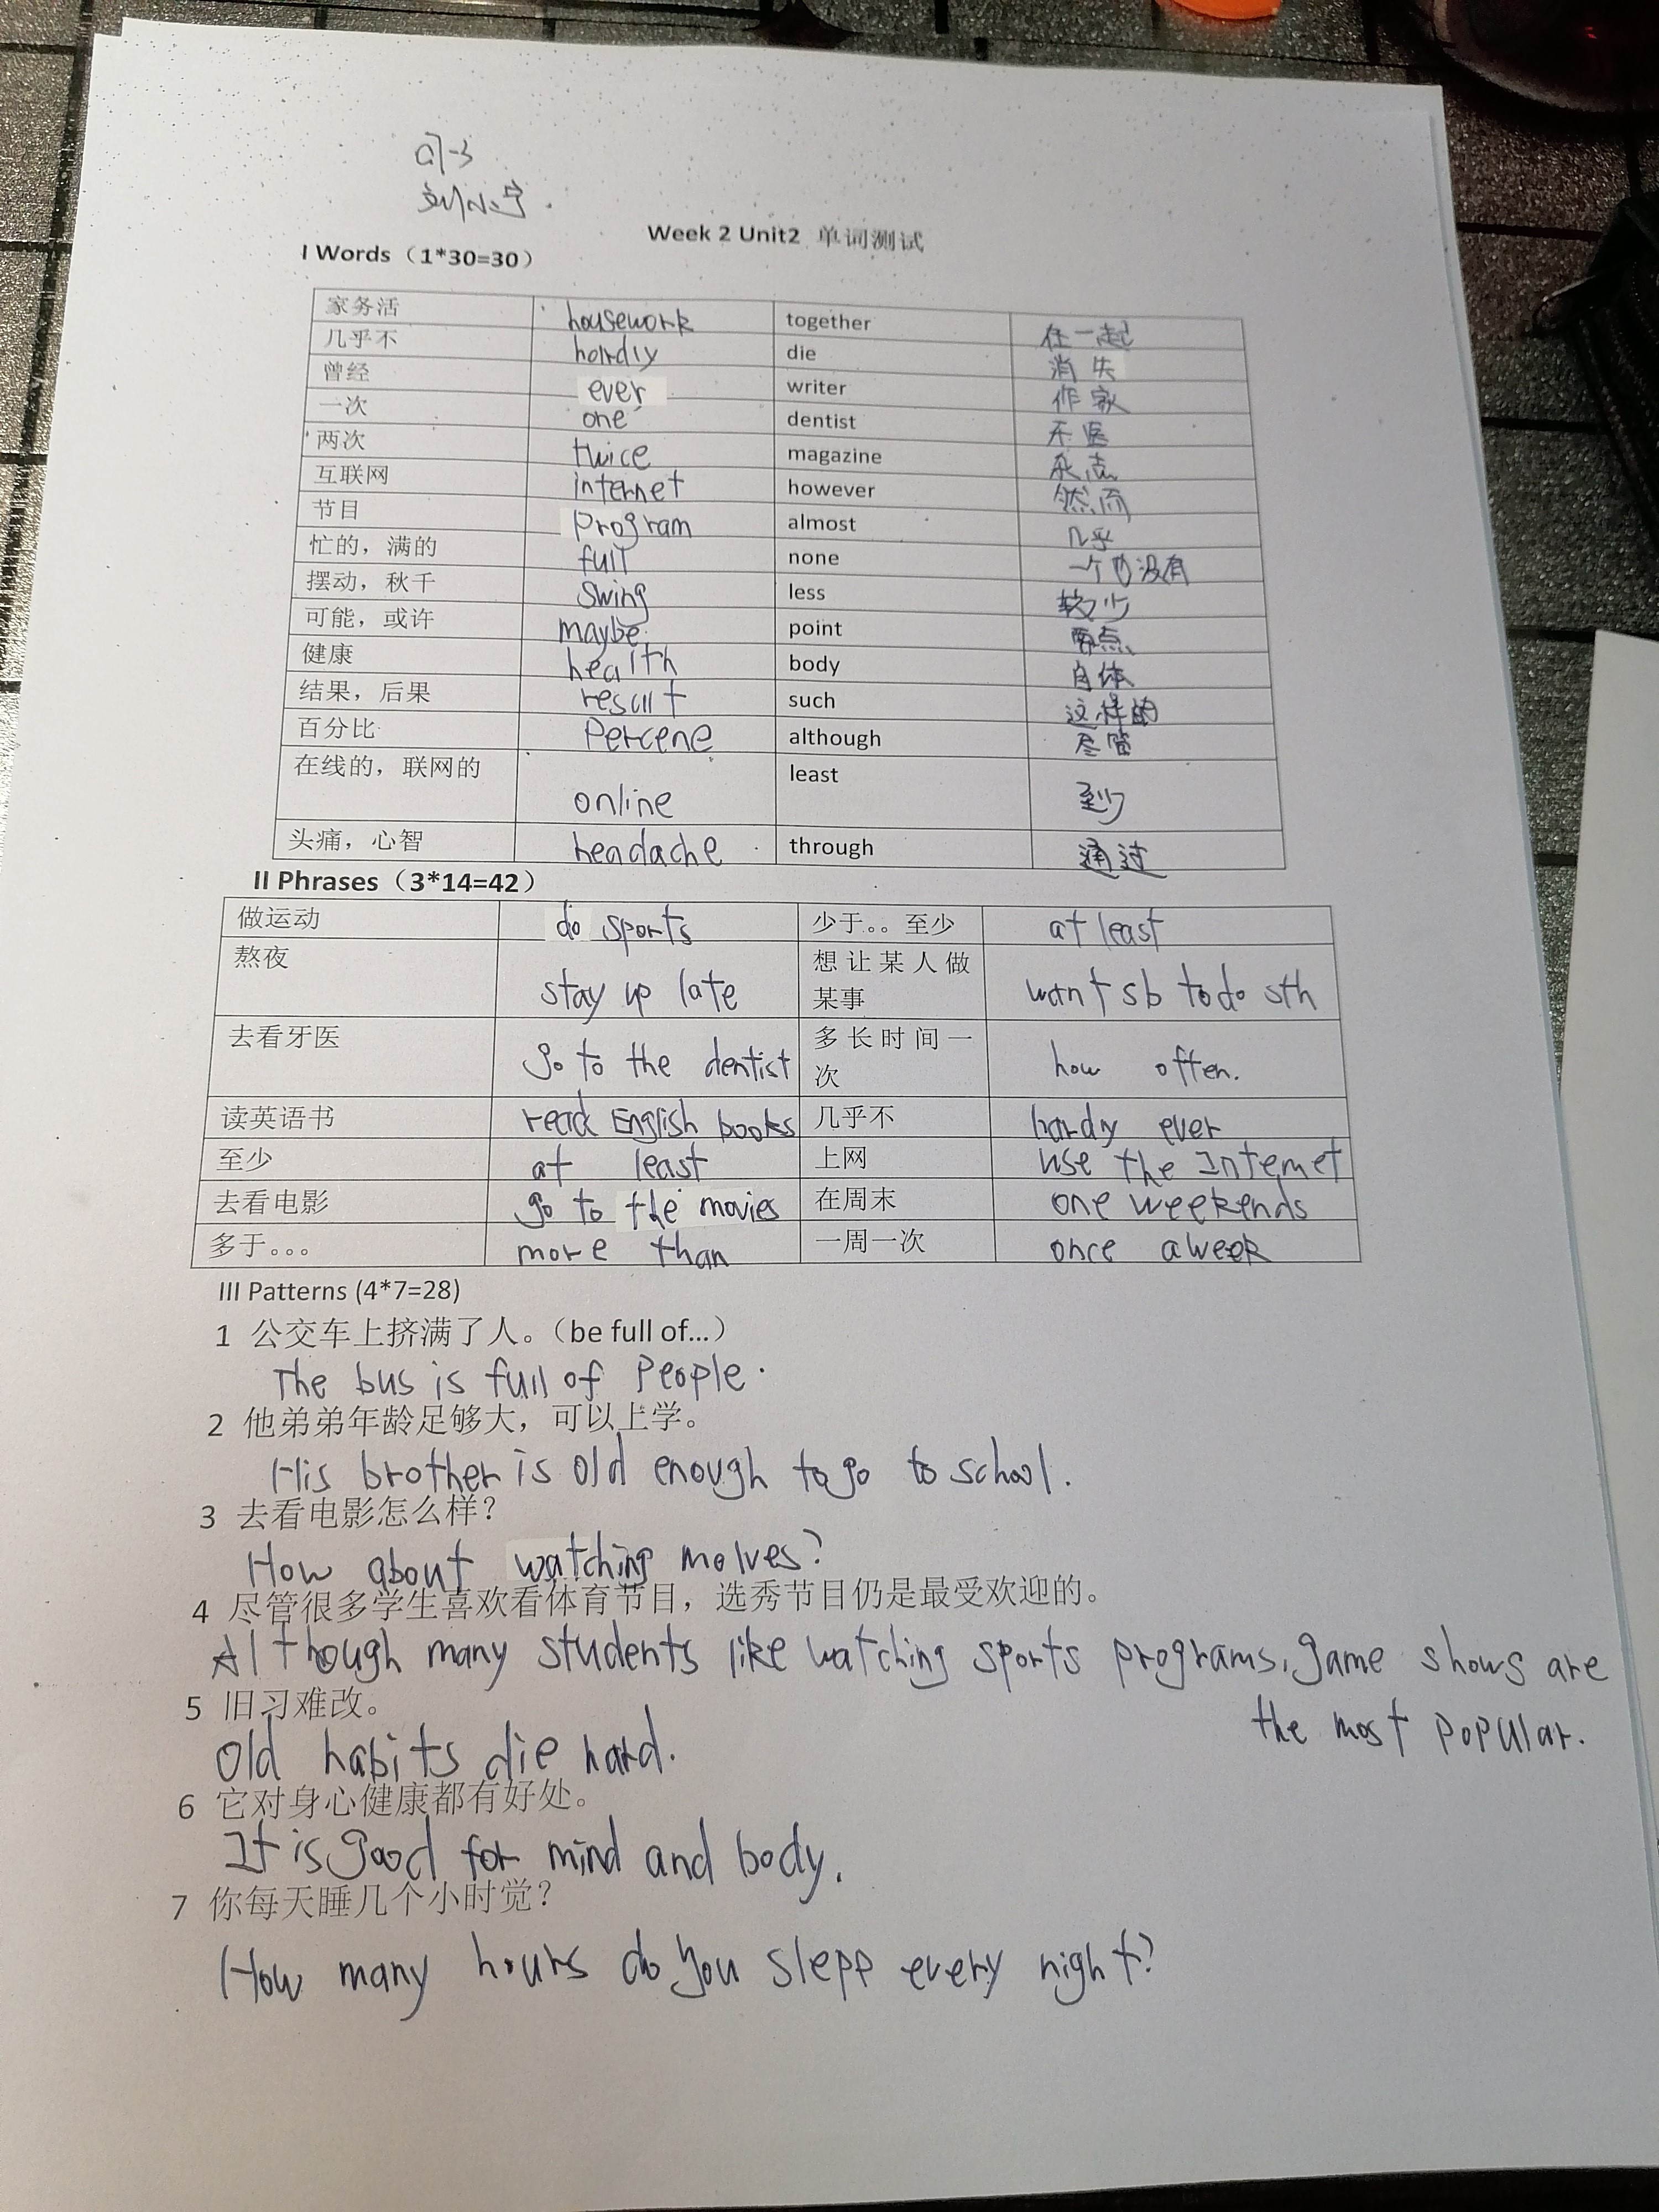 刘小宁.
Week 2 Unit2 单词测试
I Words（1*30=30）
家务活 housework together 在一起
几乎不 hardly die 消失
曾经 ever writer 作家
一次 one dentist 牙医
两次 twice magazine 杂志
互联网 internet however 然而
节目 Program almost 几乎
忙的，满的 full none 一个也没有
摆动，秋千 swing less 较少
可能，或许 maybe. point 要点
健康 health body 身体
结果，后果 result such 这样的
百分比 Percene although 尽管
在线的，联网的 online least 至少
头痛，心智 headache through 通过
II Phrases（3*14=42）
做运动 do sports 少于。。至少 at least
熬夜 stay up late 想让某人做某事 want sb to do sth
去看牙医 go to the dentist 多长时间一次 how often.
读英语书 read English books 几乎不 hardly ever
至少 at least 上网 use the Internet
去看电影 go to the movies 在周末 one weekends
多于。。。 more than 一周一次 once a week
III Patterns (4*7=28)
1 公交车上挤满了人。（be full of...）
The bus is full of People.
2 他弟弟年龄足够大，可以上学。
His brother is old enough to go to school.
3 去看电影怎么样？
How about watching molves?
4 尽管很多学生喜欢看体育节目，选秀节目仍是最受欢迎的。
Although many students like watching sports programs, game shows are
the most popular.
5 旧习难改。
Old habits die hard.
6 它对身心健康都有好处。
It is good for mind and body.
7 你每天睡几个小时觉？
How many hours do you slepp every night?